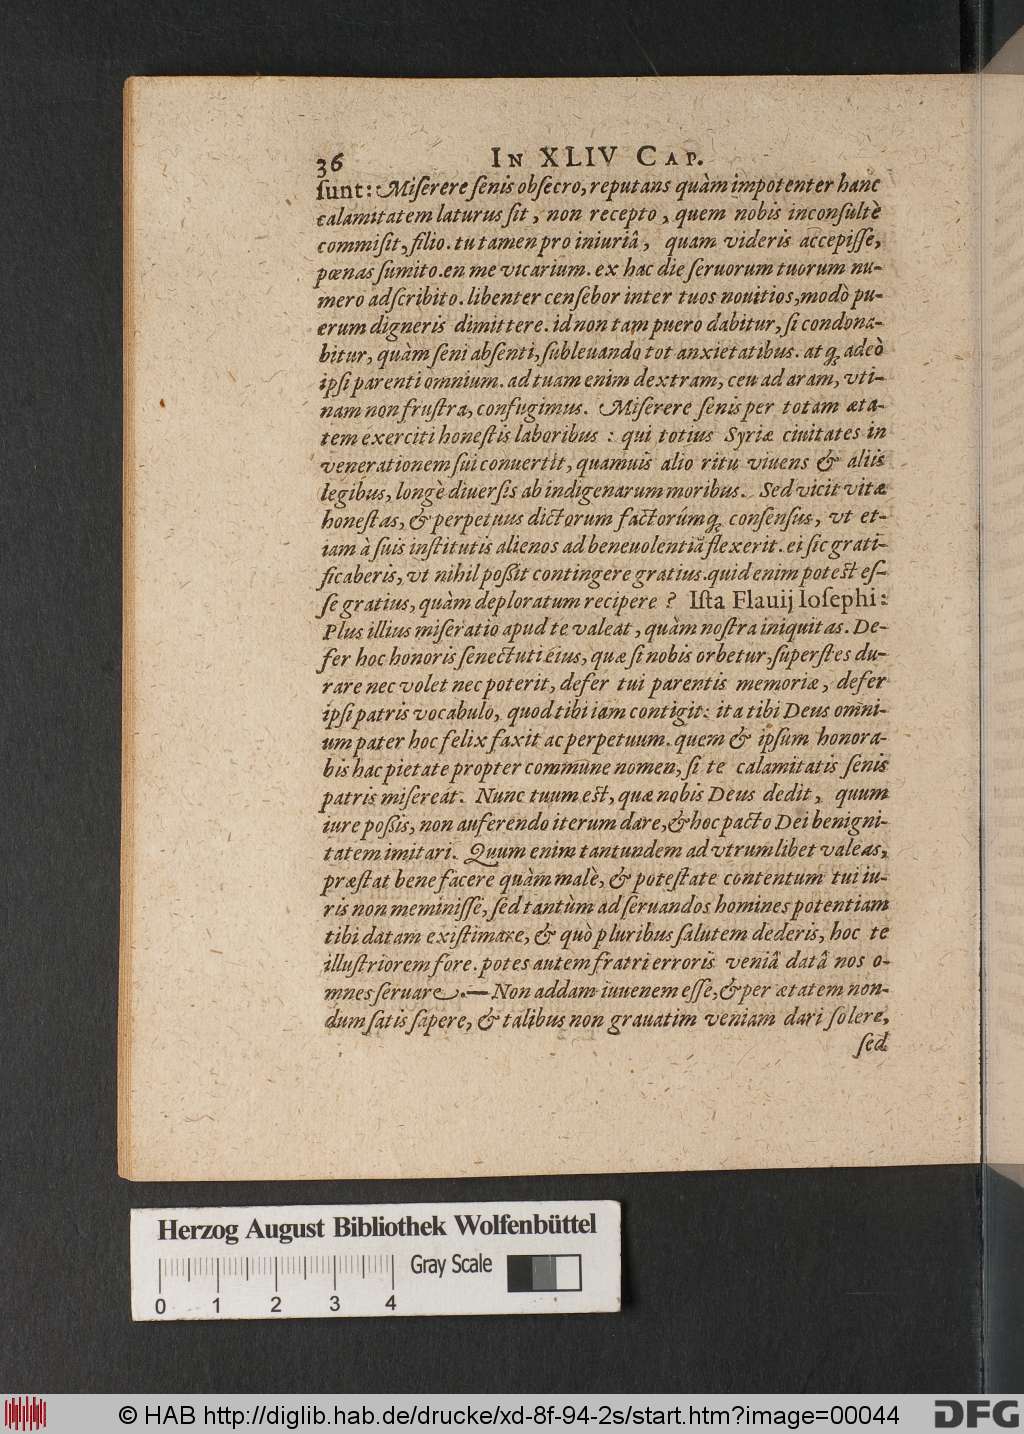 36 In XLIV Cap.
ſunt: Miſerere ſenis obſecro, reputans quàm impotenter hanc
calamitatem laturus ſit, non recepto, quem nobis inconſultè
commiſit, filio. tu tamen pro iniuriâ, quam videris accepiſſe,
pœnas ſumito. en me vicarium. ex hac die ſeruorum tuorum nu-
mero adſcribito. libenter cenſebor inter tuos nouitios, modò pu-
erum digneris dimittere. id non tam puero dabitur, ſi condona-
bitur, quàm ſeni abſenti, ſubleuando tot anxietatibus. atq; adeò
ipſi parenti omnium. ad tuam enim dextram, ceu ad aram, vti-
nam non fruſtra, confugimus. Miſerere ſenis per totam æta-
tem exerciti honeſtis laboribus: qui totius Syriæ ciuitates in
venerationem ſui conuertit, quamuis alio ritu viuens & aliis
legibus, longè diuerſis ab indigenarum moribus. Sed vicit vitæ
honeſtas, & perpetuus dictorum factorúmq; conſenſus, vt et-
iam à ſuis inſtitutis alienos ad beneuolentiã flexerit. ei ſic grati-
ficaberis, vt nihil poßit contingere gratius. quid enim poteſt eſ-
ſe gratius, quàm deploratum recipere? Iſta Flauij Ioſephi:
Plus illius miſeratio apud te valeat, quàm noſtra iniquitas. De-
fer hoc honoris ſenectuti eius, quæ ſi nobis orbetur, ſuperſtes du-
rare nec volet nec poterit, defer tui parentis memoriæ, defer
ipſi patris vocabulo, quod tibi iam contigit: ita tibi Deus omni-
um pater hoc felix faxit ac perpetuum. quem & ipſum honora-
bis hac pietate propter commune nomen, ſi te calamitatis ſenis
patris miſereat. Nunc tuum eſt, quæ nobis Deus dedit, quum
iure poßis, non auferendo iterum dare, & hoc pacto Dei benigni-
tatem imitari. Quum enim tantundem ad vtrumlibet valeas,
præſtat bene facere quàm malè, & poteſtate contentum tui iu-
ris non meminiſſe, ſed tantùm ad ſeruandos homines potentiam
tibi datam exiſtimare, & quò pluribus ſalutem dederis, hoc te
illuſtriorem fore. potes autem fratri erroris veniâ datâ nos o-
mnes ſeruare.— Non addam iuuenem eſſe, & per ætatem non-
dum ſatis ſapere, & talibus non grauatim veniam dari ſolere,
ſed
Herzog August Bibliothek Wolfenbüttel
Gray Scale
0 1 2 3 4
© HAB http://diglib.hab.de/drucke/xd-8f-94-2s/start.htm?image=00044
DFG